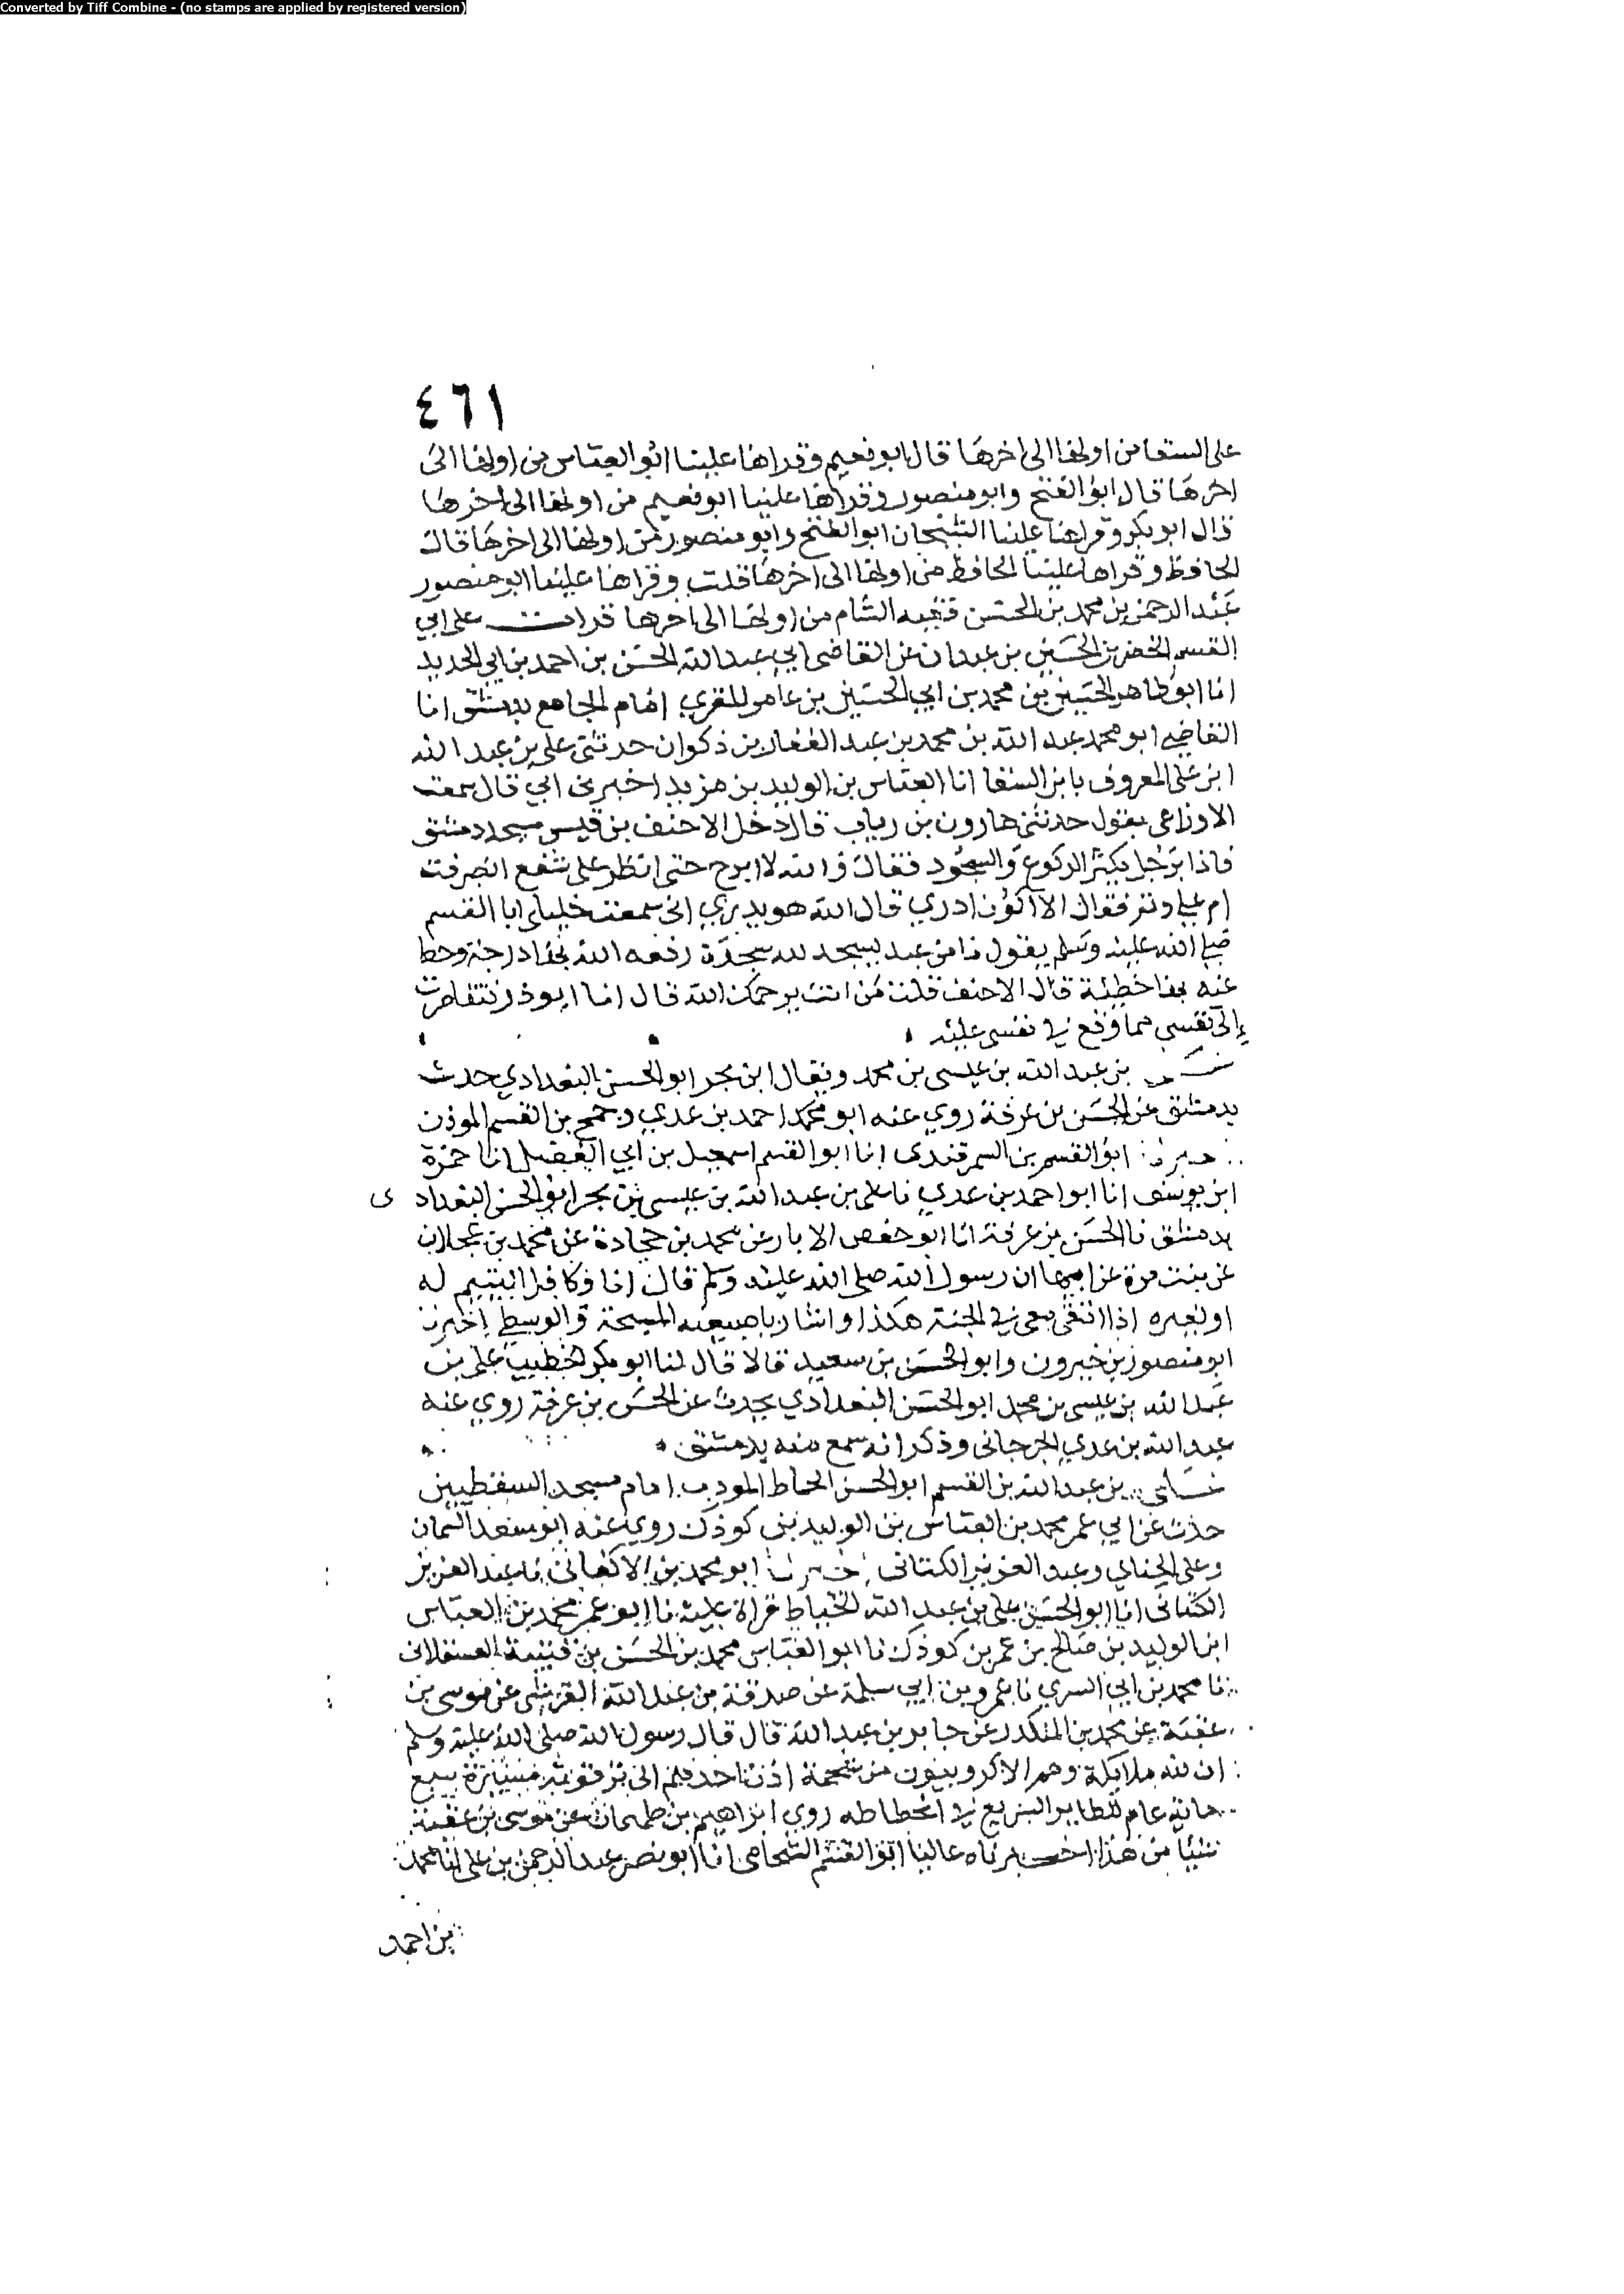 Converted by Tiff Combine - (no stamps are applied by registered version)
٤٦١
على السقا من اولها الى اخرها قال ابو نعيم وقراها علينا ابو العباس من اولها الى
اخرها قال ابو الفتح وابو منصور وقراها علينا ابو نعيم من اولها الى اخرها
قال ابو بكر وقراها علينا الشيخان ابو الفتح وابو منصور من اولها الى اخرها قال
الحافظ وقراها علينا الحافظ من اولها الى اخرها قلت وقراها علينا ابو منصور
عبد الرحمن بن محمد بن الحسن فقيه الشام من اولها الى اخرها قرات على ابي
القسم الخضر بن الحسين بن عبدان عن القاضي ابي عبد الله الحسن بن احمد بن ابي الحديد
انا ابو طاهر الحسين بن محمد بن ابي الحسين بن عامر المقري امام الجامع بدمشق انا
القاضي ابو محمد عبد الله بن محمد بن عبد الغفار بن ذكوان حدثني علي بن عبد الله
ابن علي المعروف بابن السقا انا العباس بن الوليد بن مزيد اخبرني ابي قال سمعت
الاوزاعي يقول حدثني هارون بن رياب قال دخل الاحنف بن قيس مسجد دمشق
فاذا برجل يكثر الركوع والسجود فقال والله لا ابرح حتى انظر على شفع انصرفت
ام على وتر فقال الا اكون ادري قال الله هو يدري اني سمعت خليلي ابا القسم
صلى الله عليه وسلم يقول ما من عبد يسجد لله سجدة رفعه الله بها درجة وحط
عنه بها خطئة قال الاحنف قلت من انت يرحمك الله قال انا ابو ذر فتقاصرت
الى نفسي مما وقع في نفسي عليه
بن عبد الله بن عيسى بن محمد ويقال ابن بحر ابو الحسن البغدادي حدث
بدمشق عن الحسن بن عرفة روى عنه ابو محمد احمد بن عدي وجمح بن القسم الموذن
ابو القسم بن السمرقندي انا ابو القسم اسمعيل بن ابي الفضل انا حمزة
ابن يوسف انا ابو احمد بن عدي نا علي بن عبد الله بن عيسى بن بحر ابو الحسن البغدادي
بدمشق نا الحسن بن عرفة انا ابو حفص الابار عن محمد بن جحادة عن محمد بن عجلان
عن بنت مرة عن ابيها ان رسول الله صلى الله عليه وسلم قال انا وكافل اليتيم له
او لغيره اذا اتقى معي في الجنة هكذا واشار باصبعيه المسبحة والوسطى اخبرنا
ابو منصور بن خيرون وابو الحسن بن سعيد قالا قال لنا ابو بكر الخطيب علي بن
عبد الله بن عيسى بن محمد ابو الحسن البغدادي يحدث عن الحسن بن عرفة روى عنه
عبد الله بن عدي الجرجاني وذكر انه سمع منه بدمشق
بن عبد الله بن القسم ابو الحسن الخياط المودب امام مسجد السفطيين
حدث عن ابي عمر محمد بن العباس بن الوليد بن كوذك روى عنه ابو سعد السمان
وعلي الحنائي وعبد العزيز الكتاني اخبرنا ابو محمد بن الاكفاني نا عبد العزيز
الكتاني انا ابو الحسن علي بن عبد الله الخياط قراة عليه نا ابو عمر محمد بن العباس
ابن الوليد بن صالح بن عمر بن كوذك نا ابو العباس محمد بن الحسن بن قتيبة العسقلاني
نا محمد بن ابي السري نا عمرو بن ابي سلمة عن صدقة بن عبد الله القرشي عن موسى بن
عقبة عن محمد بن المنكدر عن جابر بن عبد الله قال قال رسول الله صلى الله عليه وسلم
ان لله ملايكة وهم الاكروبيون من شحمة اذن احدهم الى ترقوته مسيرة سبع
ماية عام للطاير السريع في انحطاطه روى ابراهيم بن طهمان عن موسى بن عقبة
شيئا من هذا اخبرناه عاليا ابو القسم الشحامي انا ابو نصر عبد الرحمن بن علي انا محمد
بن احمد